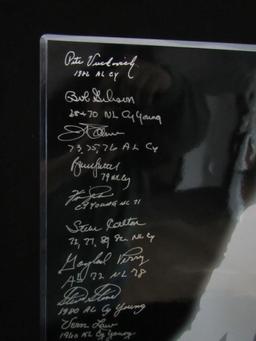 Pete Vuckovich
1982 AL Cy
Bob Gibson
68+70 NL Cy Young
73, 75, 76 AL Cy
79 NL Cy
Cy Young NL 71
Steve Carlton
72, 77, 80, 82 NL Cy
Gaylord Perry
AL 72 NL 78
Steve Stone
1980 AL Cy Young
Vern Law
1960 Cy Young